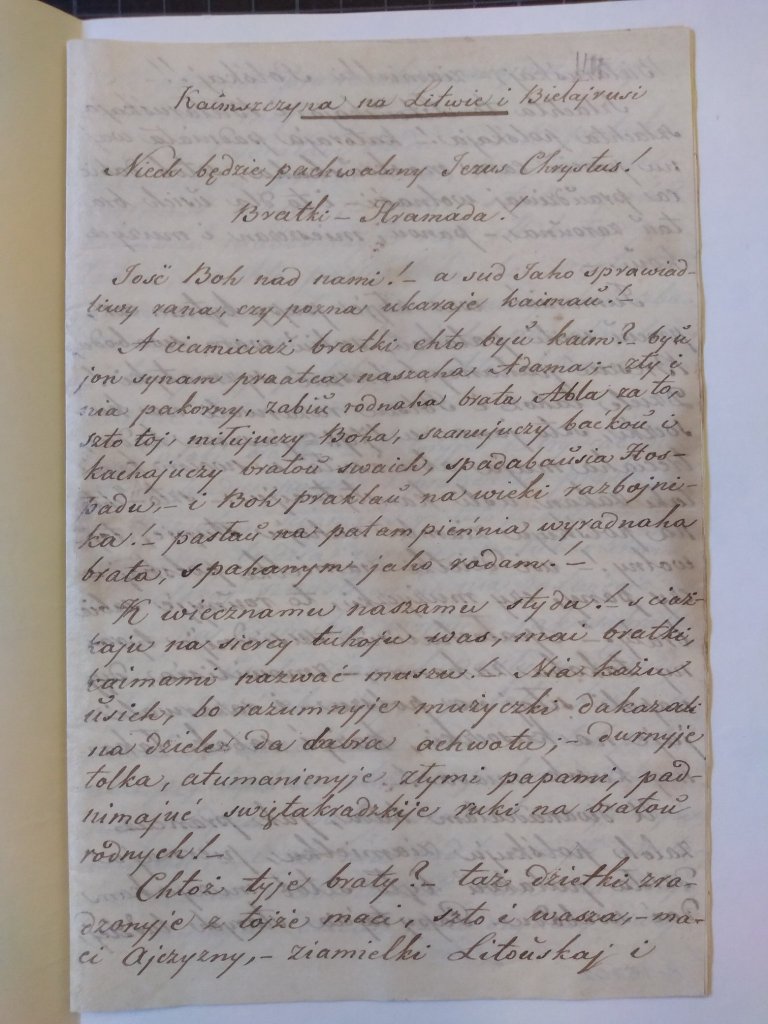 Kaimszczyna na Litwie i Bielajrusi
Niech będzie pachwalony Jezus Chrystus!
Bratki – Hramada!
Jość Boh nad nami! – a sud Jaho sprawiad-
liwy rana, czy pozna ukaraje kaimaŭ! –
A ciamiciaż bratki chto byŭ kaim? byŭ
jon synam praatca naszaha Adama; zły i
nia pakorny, zabiŭ rodnaha brata Abla za to,
szto toj, miłujuczy Boha, szanujuczy baćkoŭ i
kachajuczy bratoŭ swaich, spadabaŭsia Hos-
padu, – i Boh praklaŭ na wieki razbojni-
ka! – pasłaŭ na patampieńnia wyradnaha
brata, s pahanym jaho rodam! –
K wiecznamu naszamu stydu! – s ciaż-
kaju na siercy tuhoju was, mai bratki,
kaimami nazwać muszu! Nia każu
ŭsich, bo razumnyje mużyczki dakazali
na dziele da dabra achwotu; – durnyje
tolka, atumanienyje złymi papami, pad-
nimajuć swiętakradzkije ruki na bratoŭ
rodnych! –
Chtoż tyje braty? – taż dzietki zra-
dzonyje z tojże maci, szto i wasza, – ma-
ci Ajczyzny, – ziamielki Litoŭskaj i